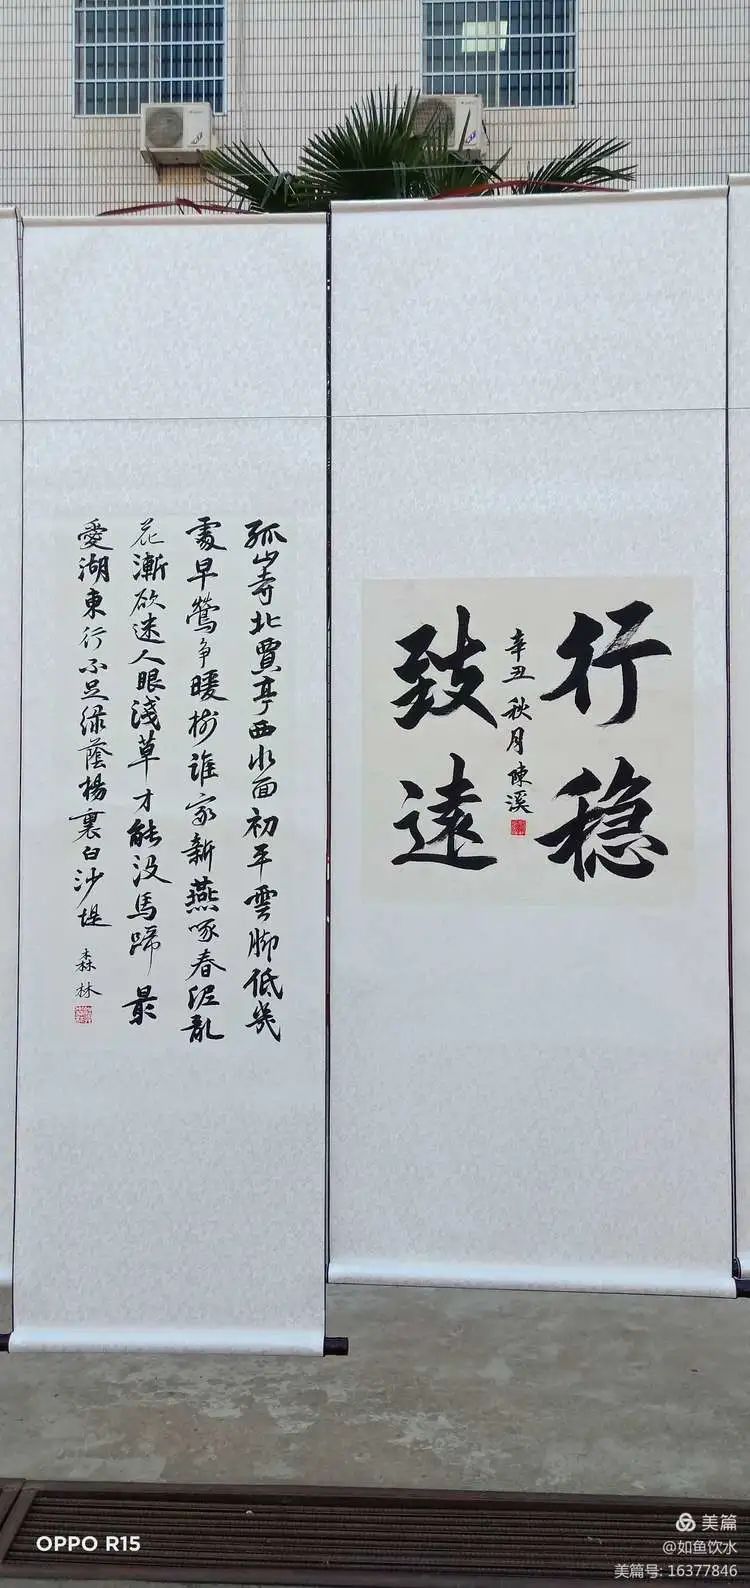 行穩
致遠
辛丑秋月陳溪
孤山寺北賈亭西水面初平雲脚低幾
處早鶯争暖樹誰家新燕啄春泥亂
花漸欲迷人眼淺草才能没馬蹄最
愛湖東行不足绿蔭楊裏白沙堤
森林
OPPO R15
美篇
@如鱼饮水
美篇号: 16377846